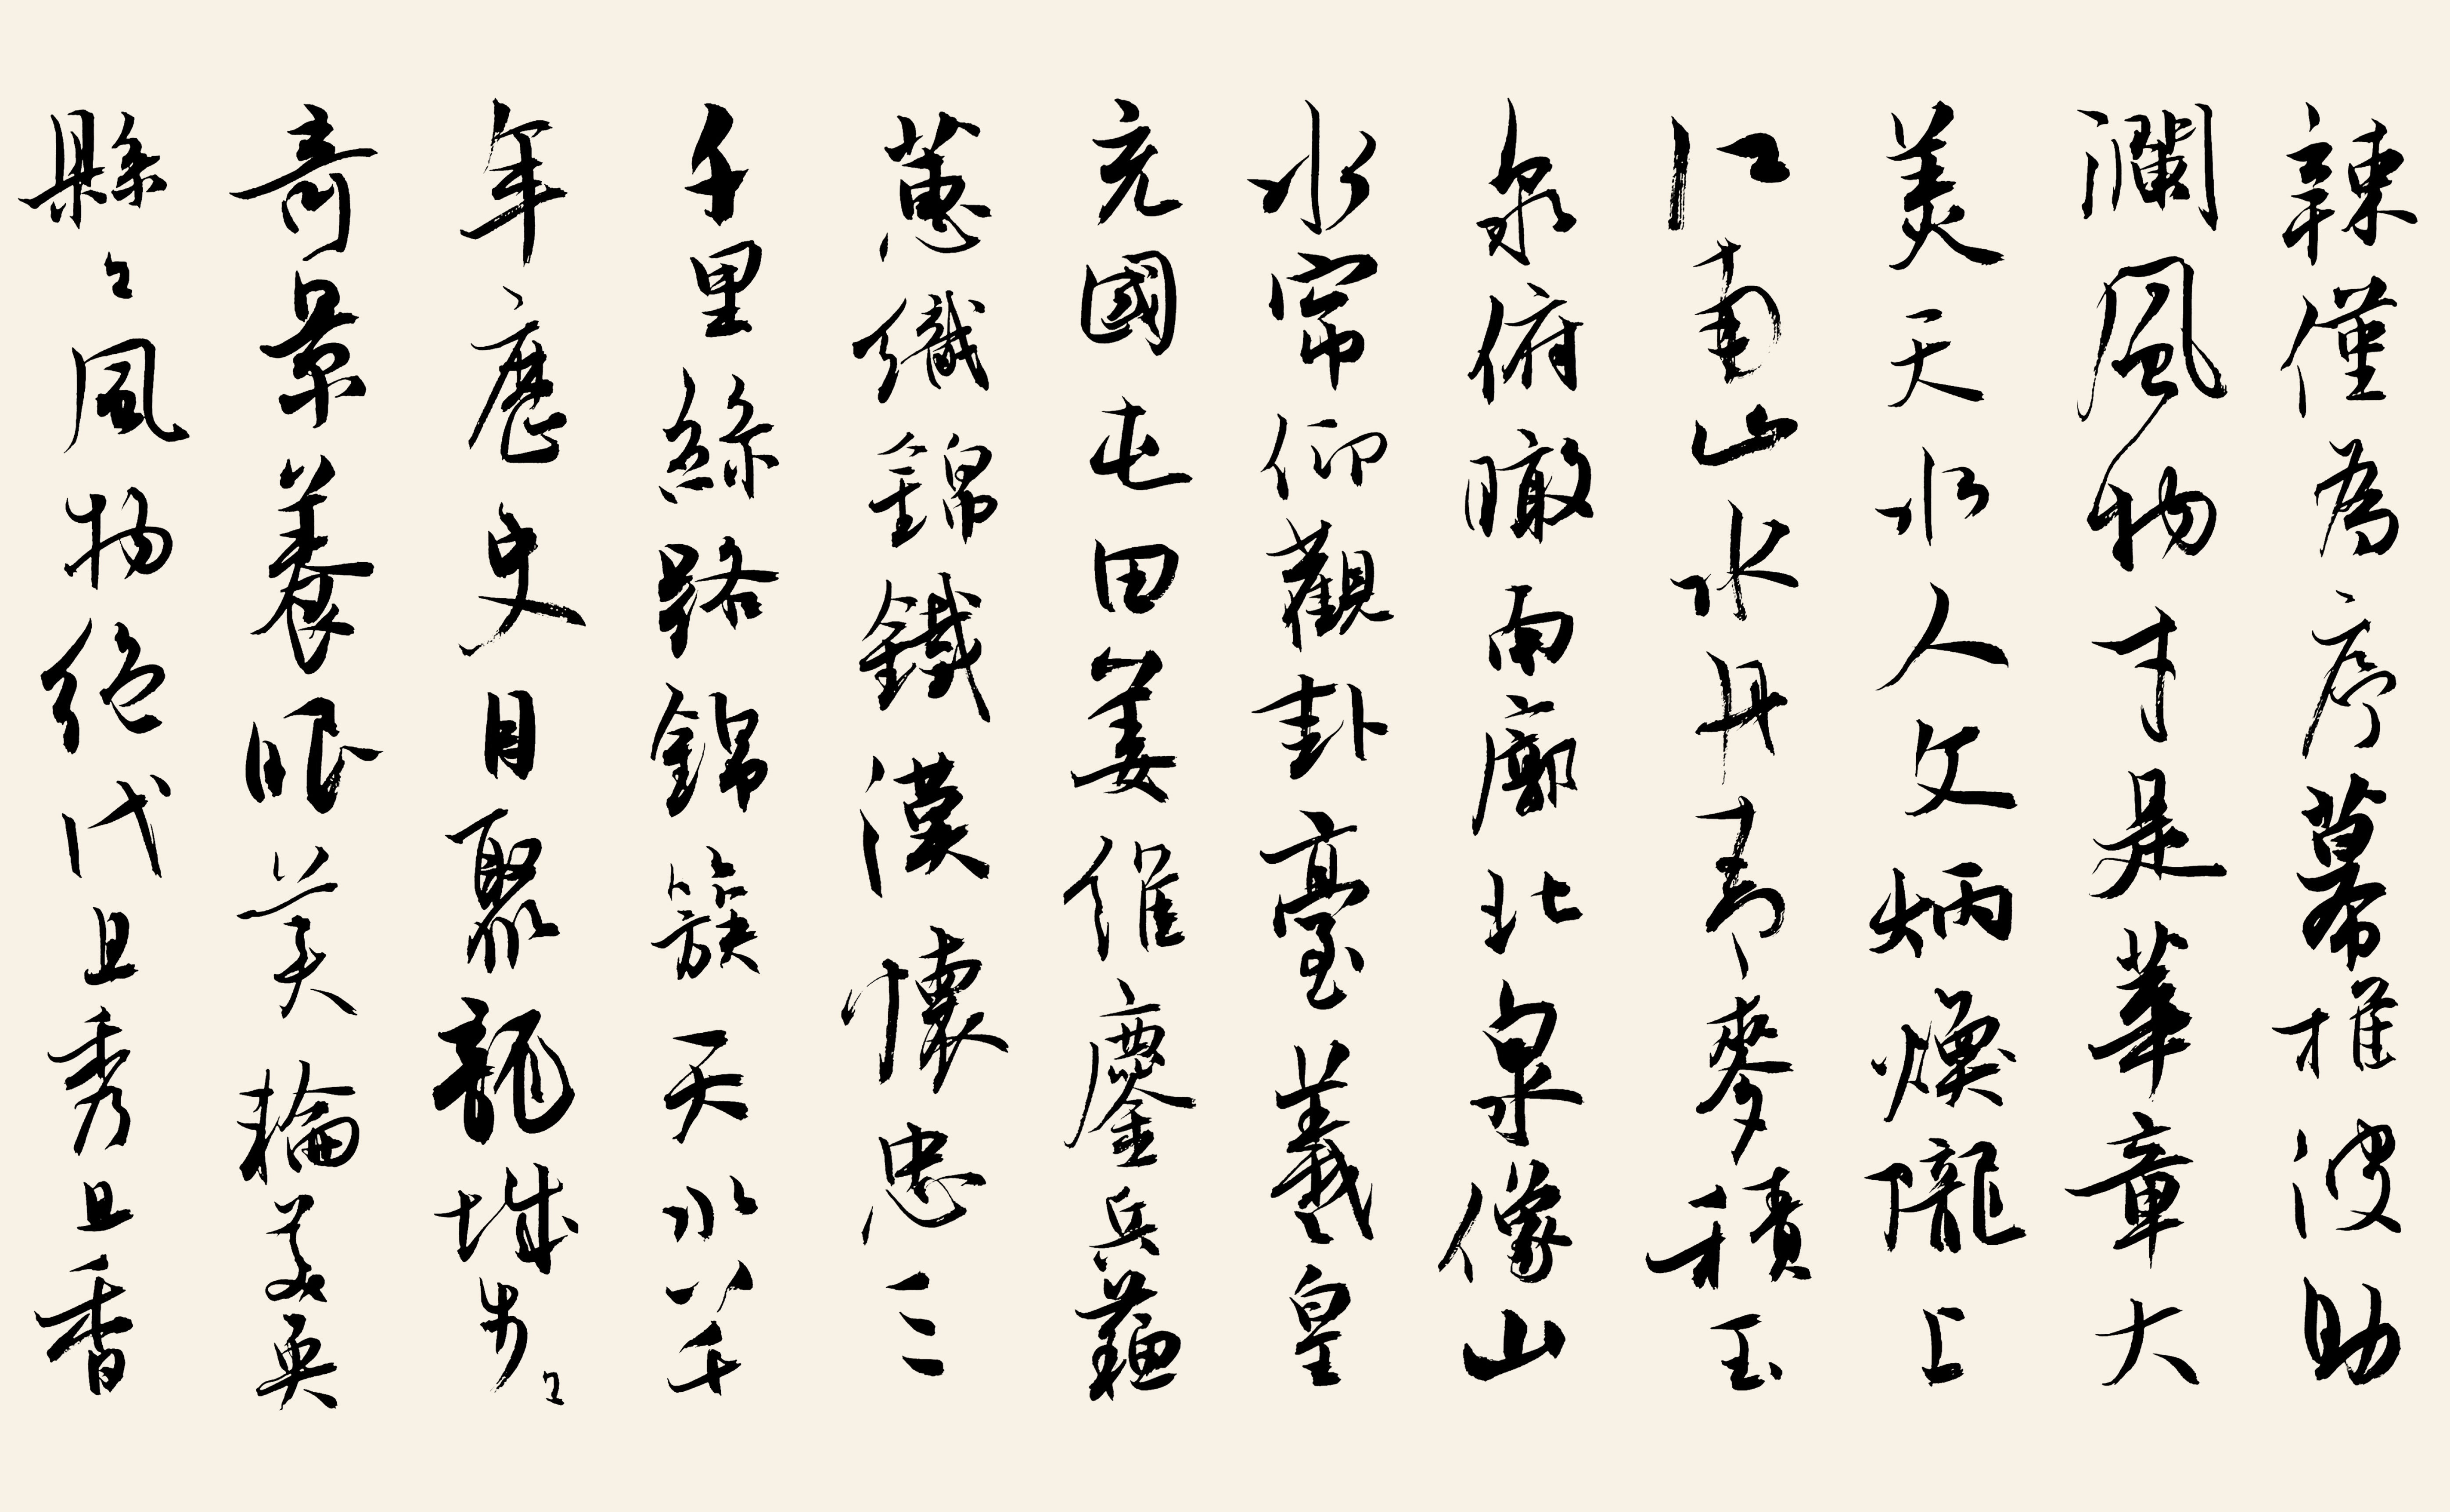 辣僅為序幕推波助
瀾風物才是華章大
美天水人文炳煥隴上
江南山水丹青麥積玉
泉俯瞰南廓北卓像山
水簾仰觀卦臺羲皇
充國屯田姜維鏖兵蘇
蕙織錦鐵漢懷忠三
千里絲路錦簇天水八千
年歷史目聚龍城男々
奇景養眼美輪美奐
縣々風物絕代且秀且香